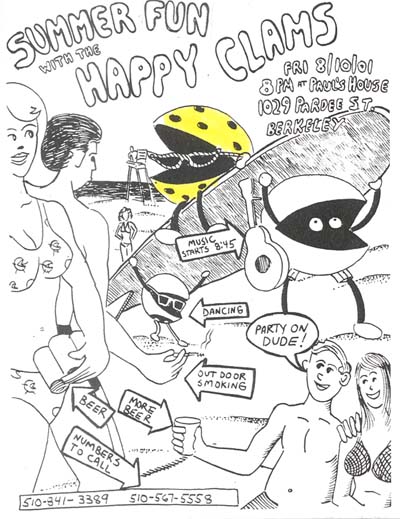 SUMMER FUN
WITH THE
HAPPY CLAMS
FRI 8/10/01
8 PM AT PAUL'S HOUSE
1029 PARDEE ST.
BERKELEY
MUSIC
STARTS 8:45
DANCING
PARTY ON
DUDE!
OUTDOOR
SMOKING
BEER
MORE
BEER
NUMBERS
TO CALL
510-841-3389 510-567-5558